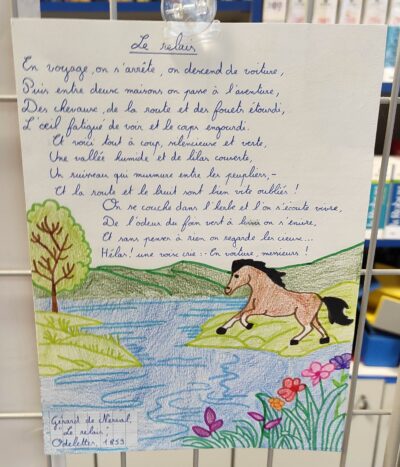 Le relais
En voyage, on s'arrête, on descend de voiture,
Puis entre deux maisons on passe à l'aventure,
Des chevaux, de la route et des fouets étourdi,
L'œil fatigué de voir et le corps engourdi.
Et voici tout à coup, silencieuse et verte,
Une vallée humide et de lilas couverte,
Un ruisseau qui murmure entre les peupliers,-
Et la route et le bruit sont bien vite oubliés !
On se couche dans l'herbe et l'on s'écoute vivre,
De l'odeur du foin vert à loisir on s'enivre,
Et sans penser à rien on regarde les cieux...
Hélas! une voix crie :- En voiture, messieurs !
Gérard de Nerval,
Le relais,
Odelettes, 1853